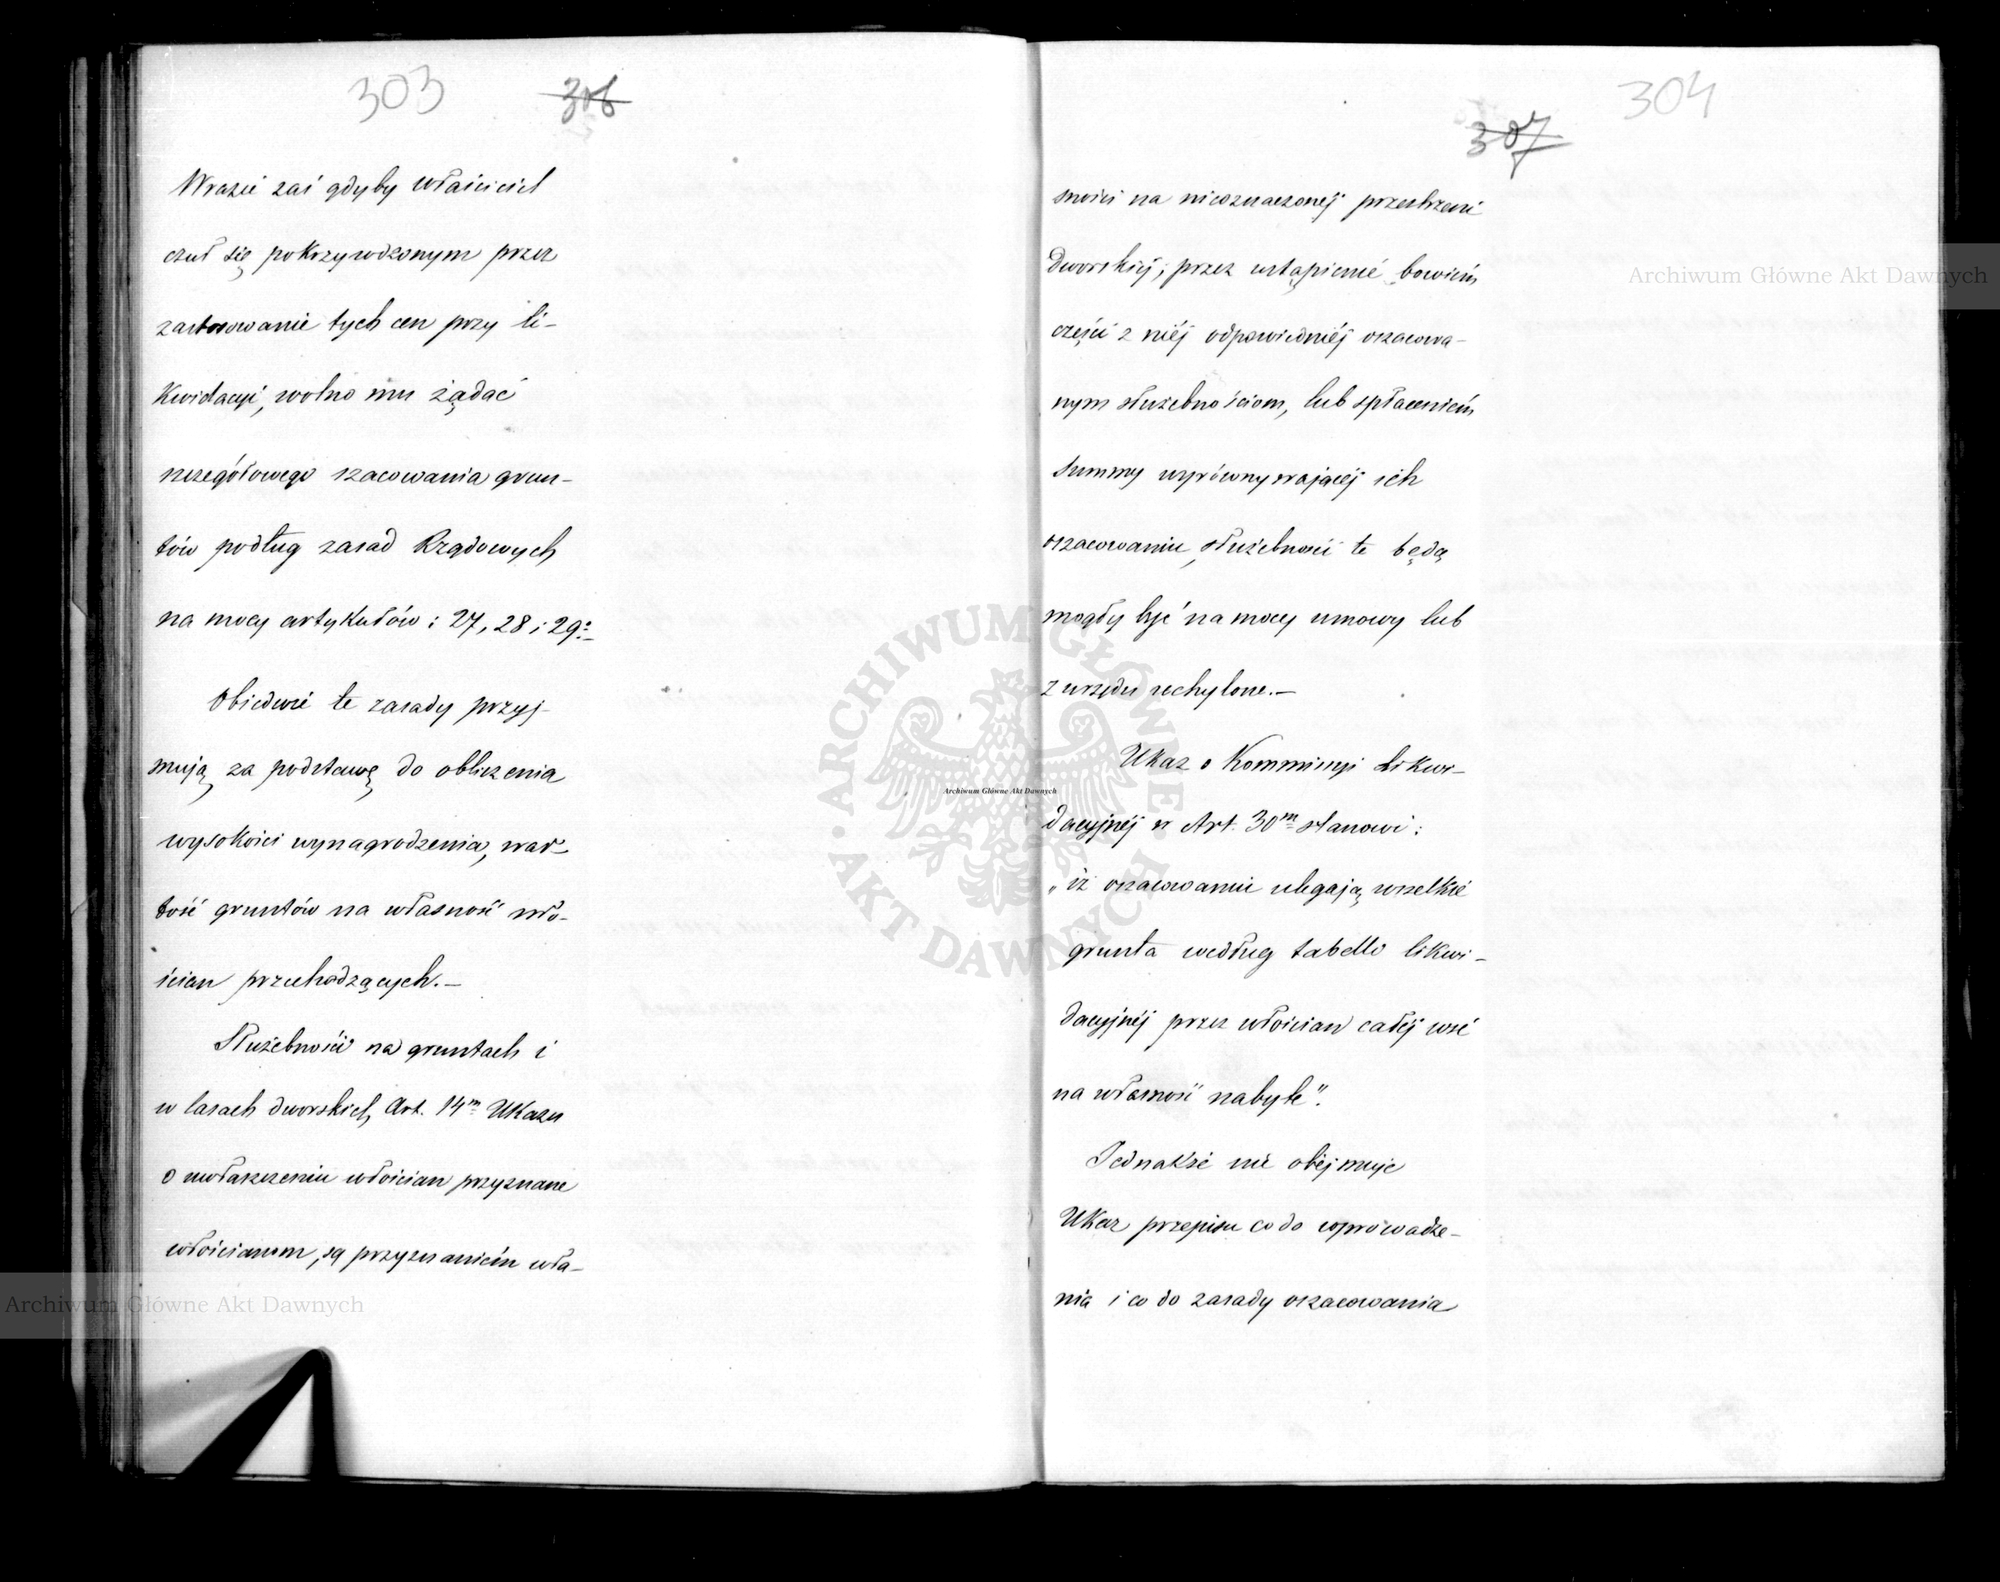 303 306
Wrazie zaś gdyby właściciel
czuł się pokrzywdzonym przez
zastosowanie tych cen przy li-
kwidacyi, wolno mu żądać
szczegółowego szacowania grun-
tów podług zasad Rządowych
na mocy artykułów: 27, 28 i 29º.–
Obiedwie te zasady przyj-
mują za podstawę do obliczenia
wysokości wynagrodzenia, war-
tość gruntów na własność wło-
ścian przechodzących.–
Służebności na gruntach i
w lasach dworskich, Art. 14m Ukazu
o uwłaszczeniu włościan przyznane
włościanom, są przyznaniem wła-
304
307
sności na nieoznaczonéj przestrzeni
Dworskiéj; przez ustąpienie bowiém
części z niéj odpowiedniéj oszacowa-
nym służebnościom, lub spłaceniém
summy wyrównywającéj ich
oszacowaniu, służebności te będą
mogły być na mocy umowy lub
z urzędu uchylone.–
Ukaz o Kommissyi Likwi-
dacyjnéj w Art. 30m stanowi:
„iż oszacowaniu ulegają wszelkie
grunta według tabelli likwi-
dacyjnéj przez włościan całéj wsi
na własność nabyte".
Jednakże nie obéjmuje
Ukaz przepisu co do wprowadze-
nia i co do zasady oszacowania
Archiwum Główne Akt Dawnych
Archiwum Główne Akt Dawnych
Archiwum Główne Akt Dawnych
ARCHIWUM GŁÓWNE AKT DAWNYCH